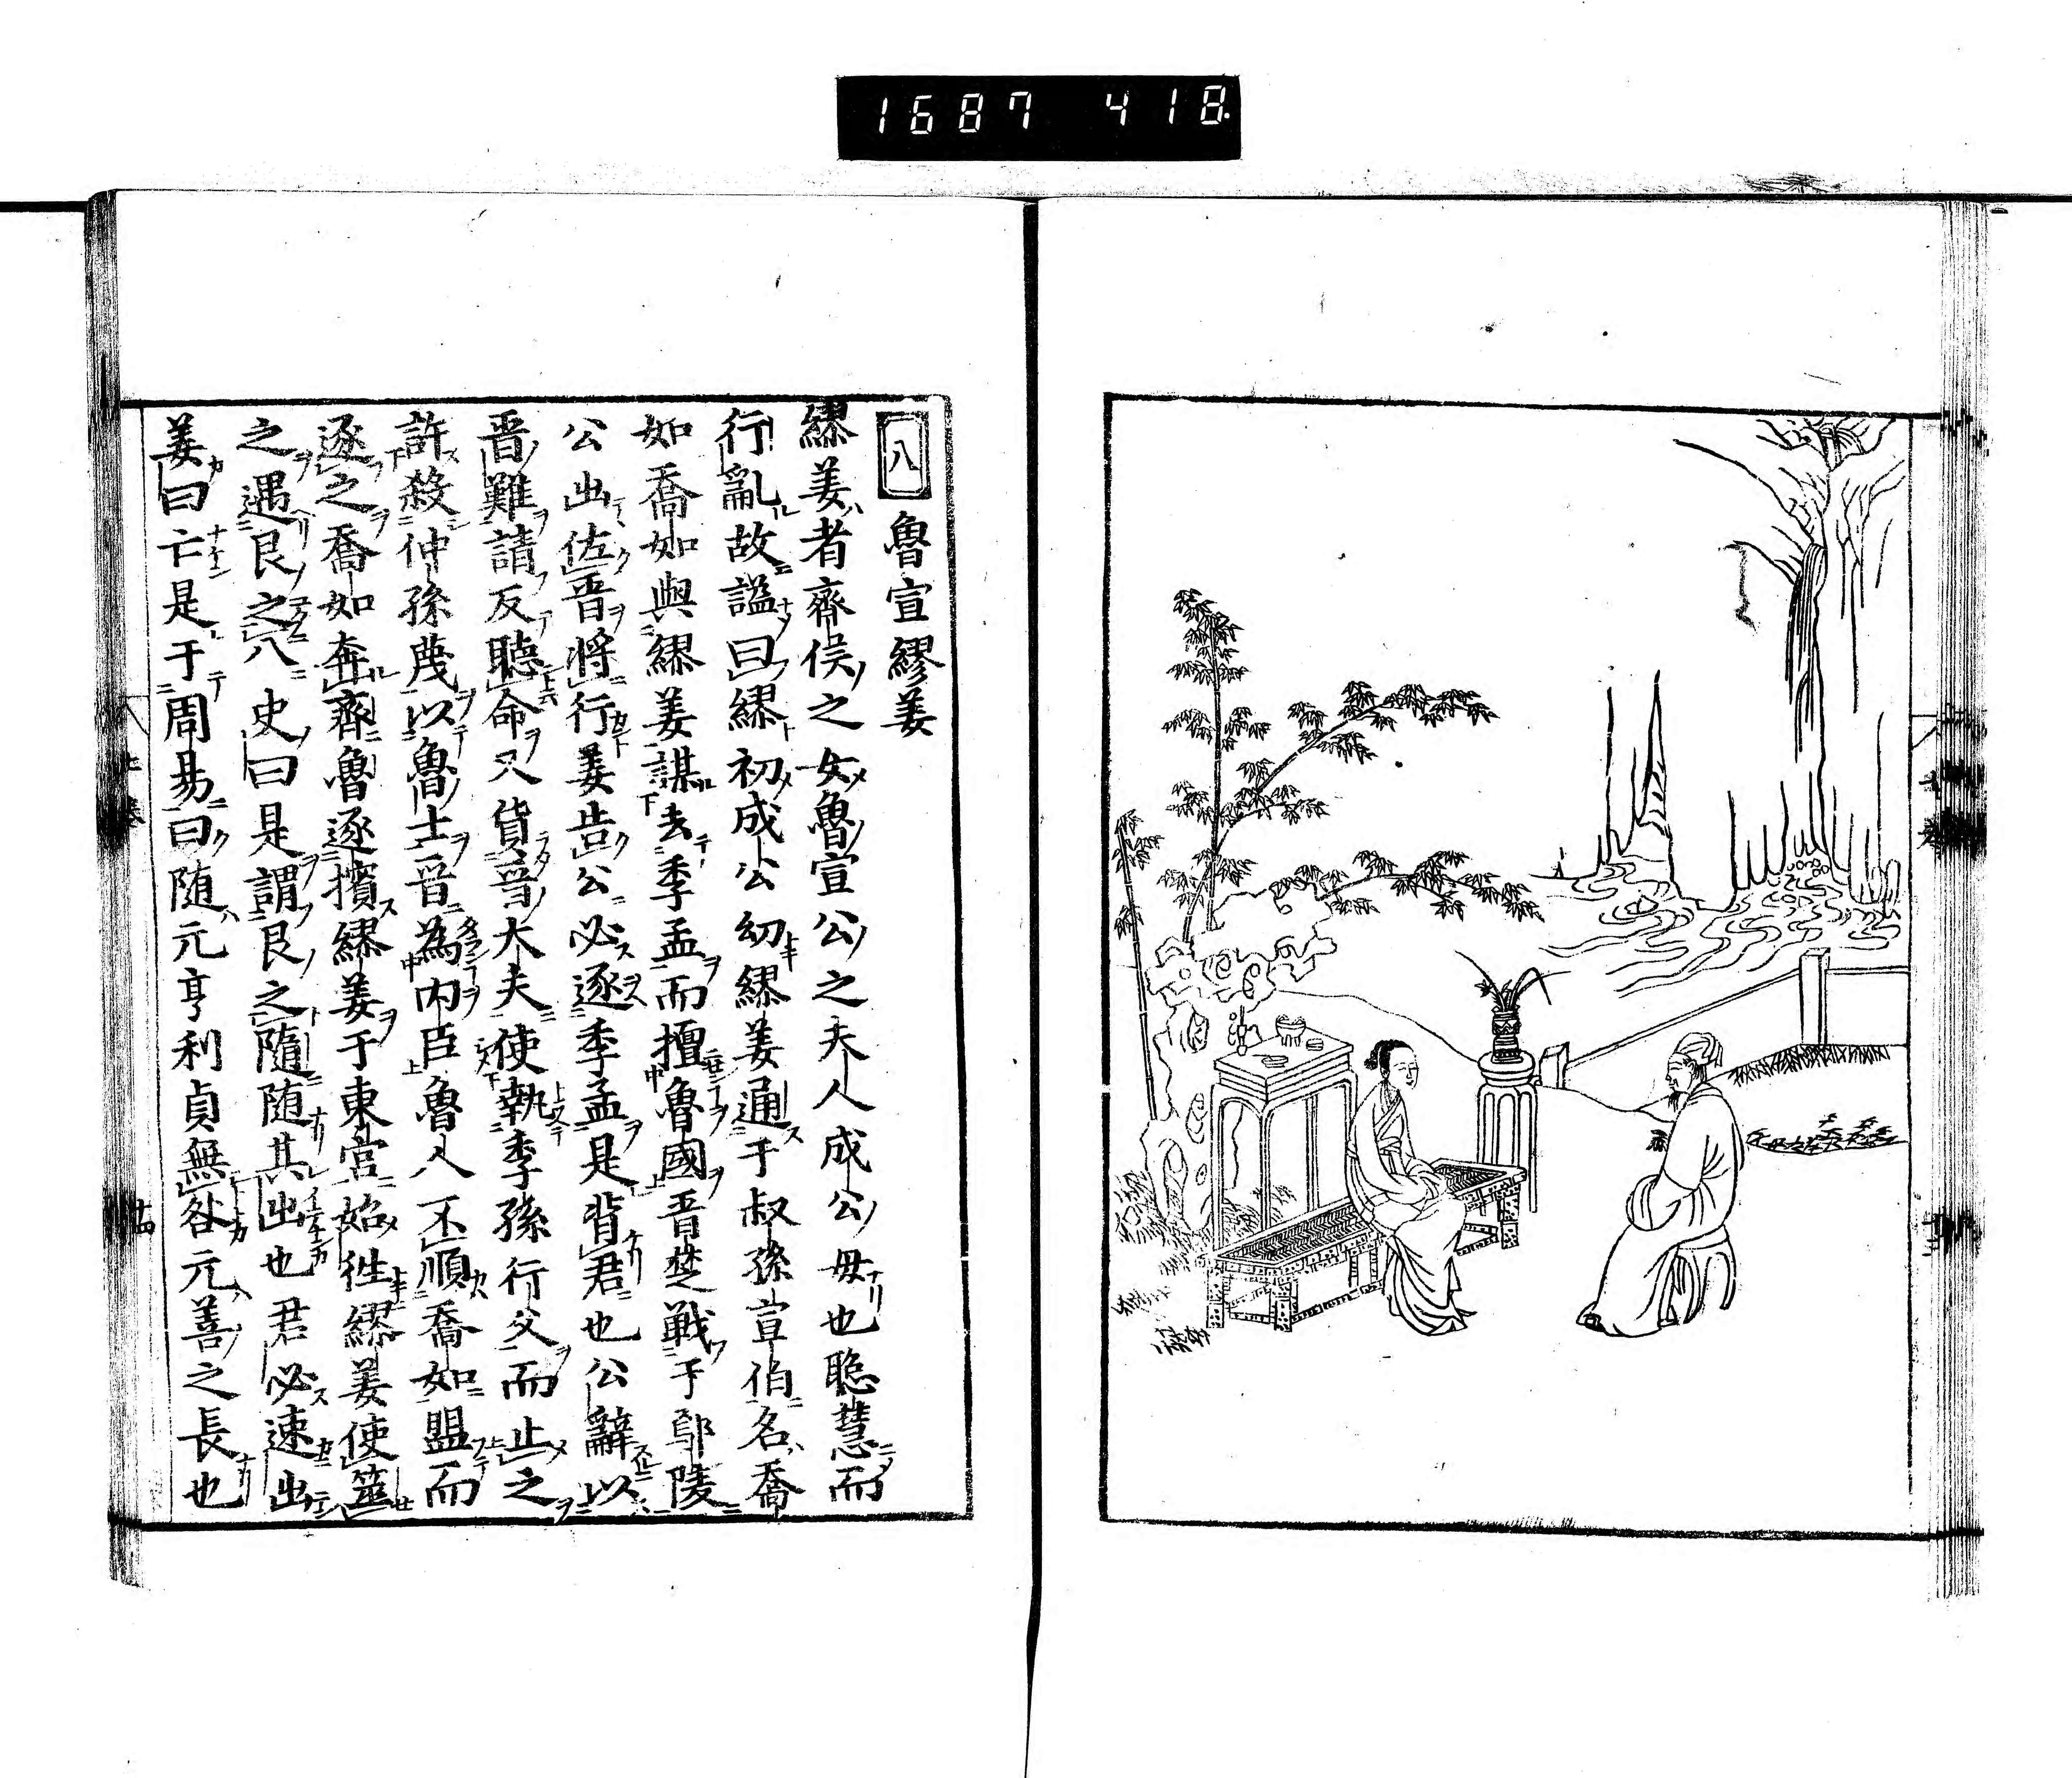 1687 418
八 魯宣繆姜
繆姜者齊侯之女魯宣公之夫人成公母也聡慧而
行亂故謚曰繆初成公幼繆姜通于叔孫宣伯名喬
如喬如與繆姜謀去季孟而擅魯國晋楚戦于鄢陵
公出佐晋將行姜告公必逐季孟是背君也公辭以
晋難請反聽命又貨晋大夫使執季孫行父而止之
許殺仲孫蔑以魯士晋為内臣魯人不順喬如盟而
逐之喬如奔齊魯逐擯繆姜于東宫始徃繆姜使筮
之遇艮之八史曰是謂艮之隨随其出也君必速出
姜曰亡是于周易曰随元亨利貞無咎元善之長也
上 卷
十四